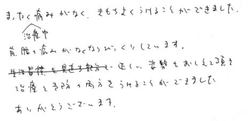 まったく痛みがなく、きもちよくうけることができました。
治療中
首腰の痛みがなくなりびっくりしています。
正しい姿勢をおしえて頂き
治療と予防の両方をうけることができました
ありがとうございます。